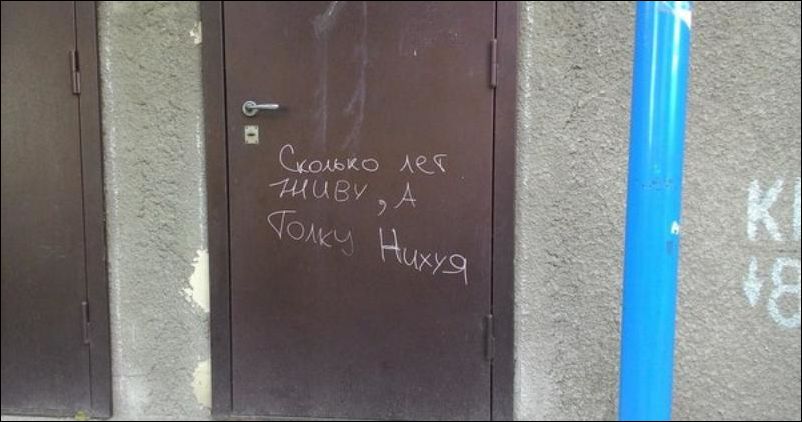 Сколько лет
живу, А
Толку Нихуя
К
↓8